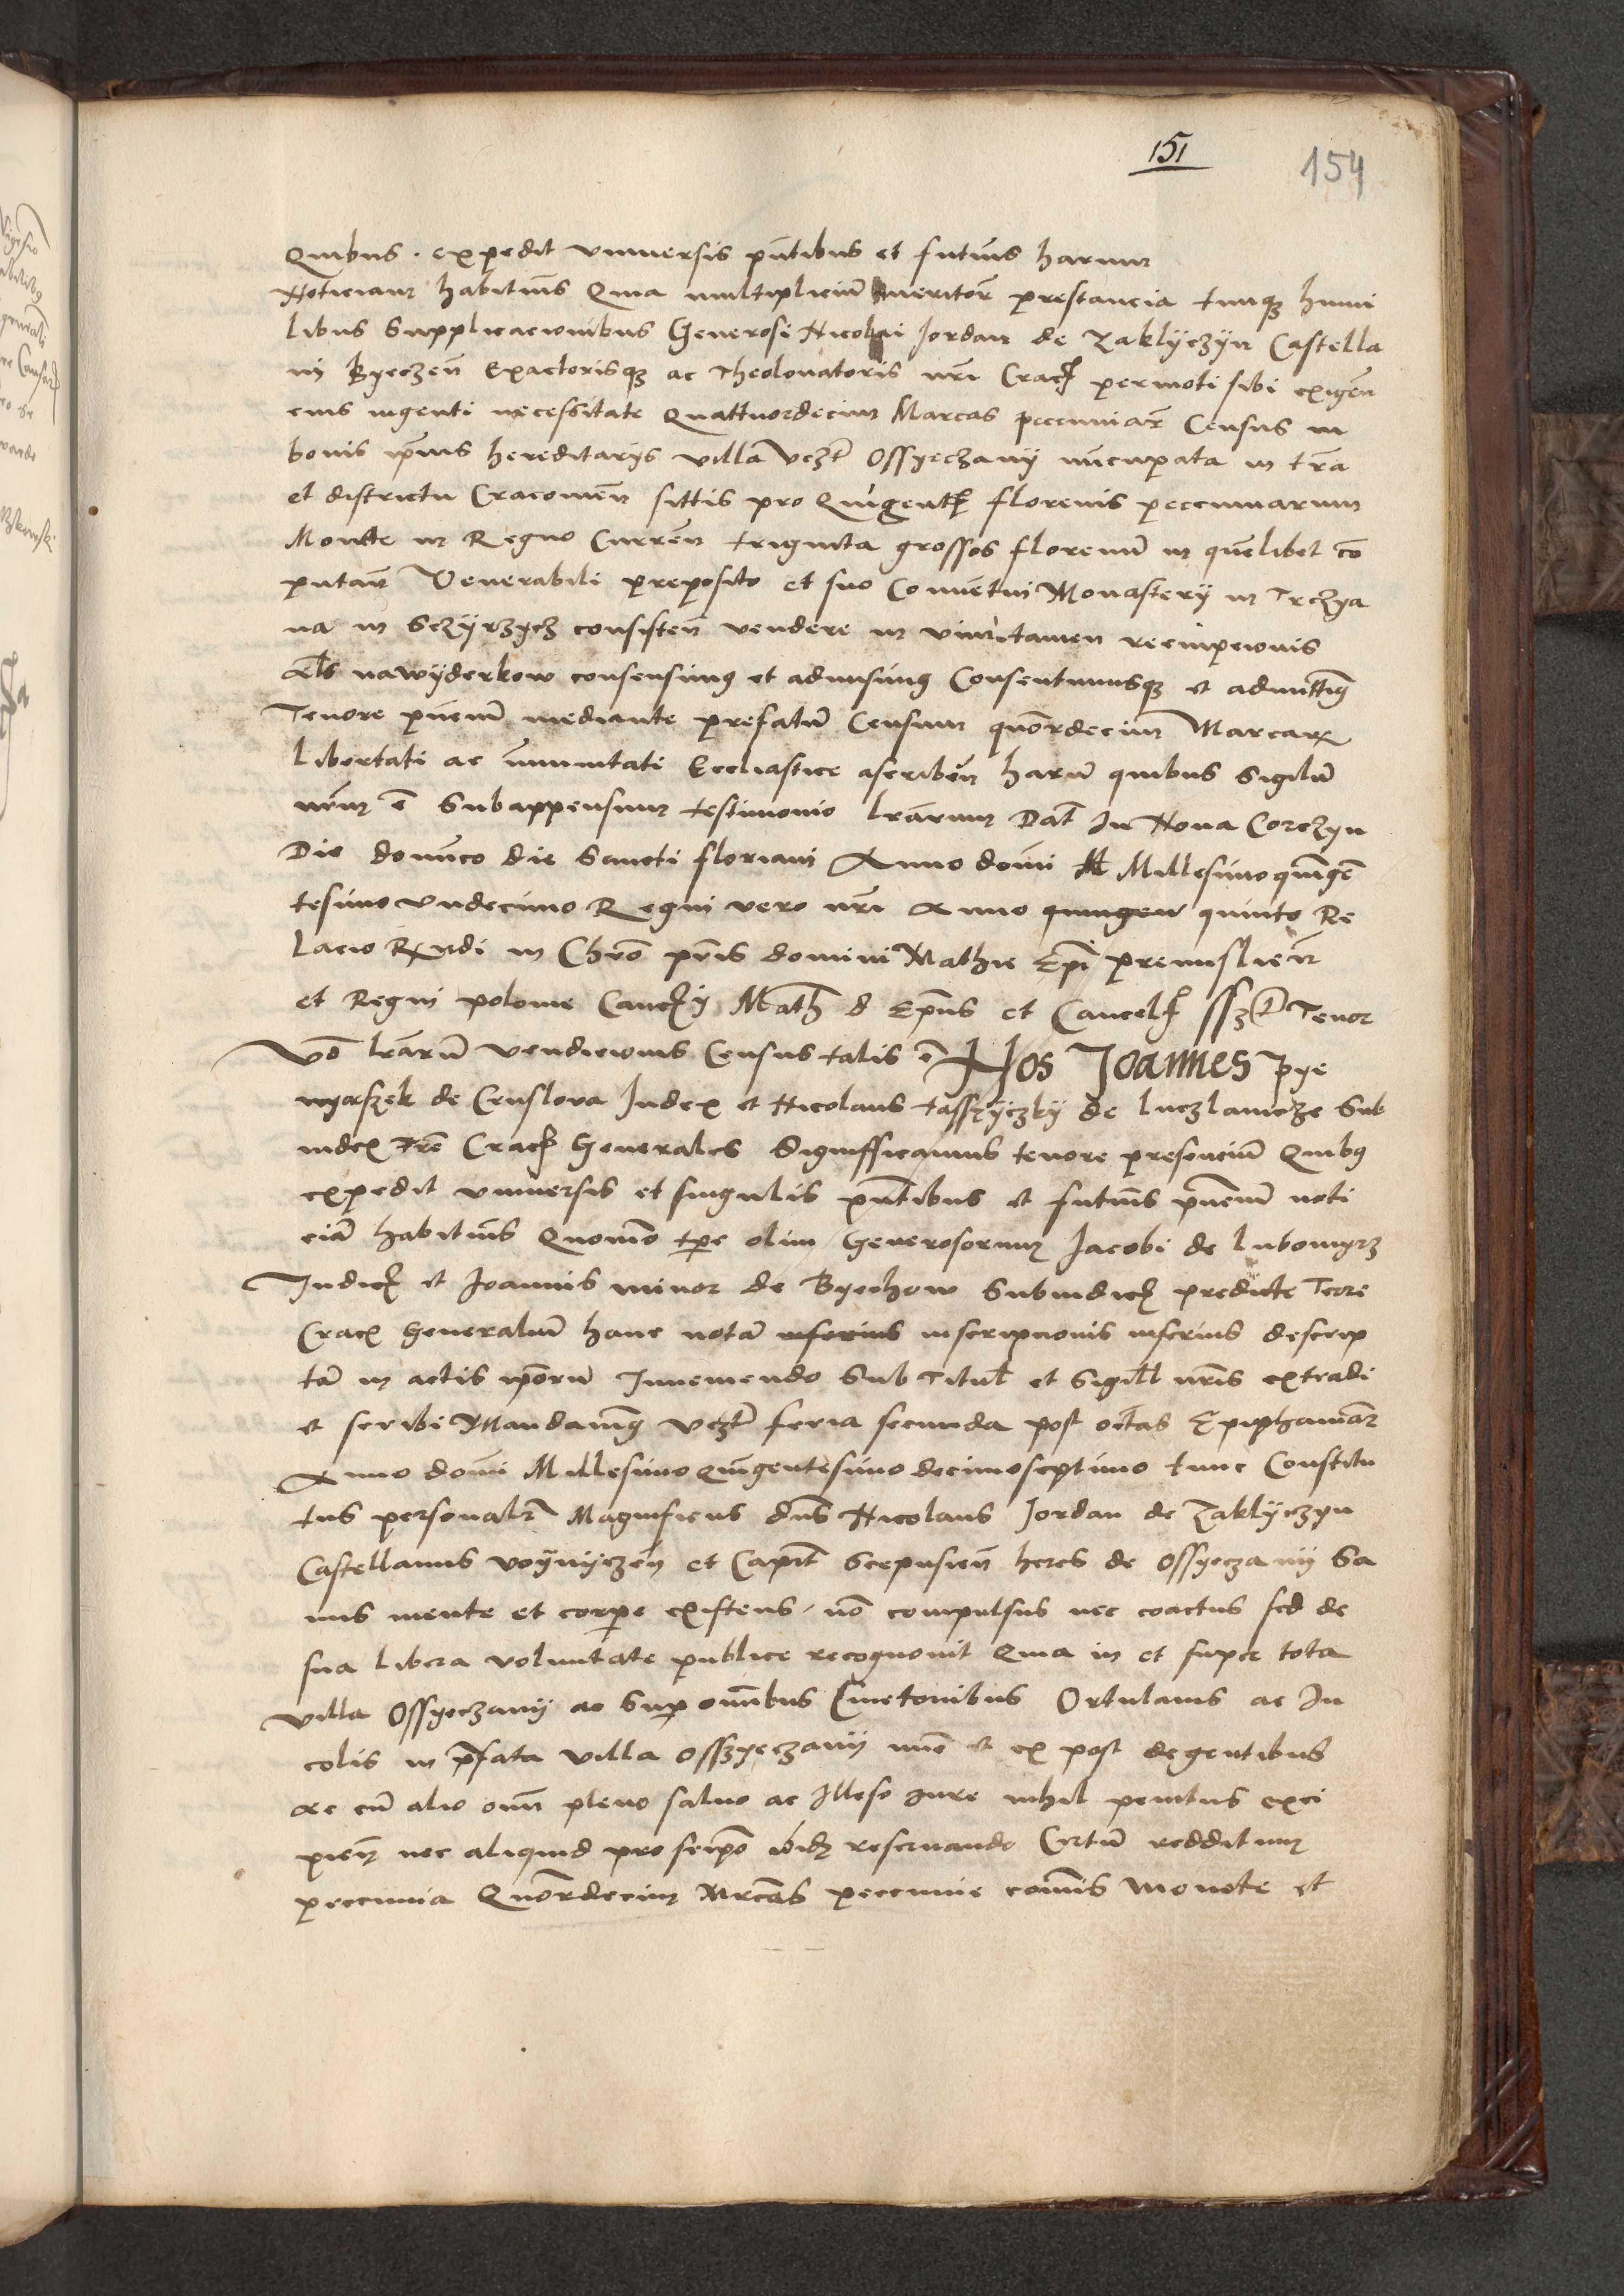 151
154
Quibus . expedit universis pntibus et futuris harum
Noticiam habituris Quia multipliciū meritor prestancia tumqz humi
libus Supplicacionibus Generosi Nicolai Jordan de Zaklyczyn Castella
ni Byeczen Exactorisqz ac Theolonatoris nri Crac permoti sibi exigen
eius ingenti necessitate Quattuordecim Marcas pecuniar Census in
bonis ipsius hereditarijs villa vczt Ossyeczany nūcupata in tra
et districtu Cracovien sittis pro Quīgent florenis peccuniarum
Monete in Regno Curren triginta grossos florenū in quelibet cō
putan Venerabili preposito et suo Conventui Monastery in Trczya
na in Sczyrzycz consisten vendere in vim tamen reempcionis
als nawyderkow consensimus et admisimus Consentimusqz et admittimus
Tenore pnciū mediante prefatū Censum quordecim Marcar
Libertati ac imunitati Ecclastice ascriben harū quibus Sigilū
nrm ē Subappensum testimonio lrarum Dat In Nova Corczyn
Die dominco die Sancti floriani Anno domi M Millesimo quīgē
tesimo undecimo Regni vero nri Anno quingen quinto Re
lacio Rndi in Chro pris domini Mathie Epi premislien
et Regni polonie Cancrij Math d Epus et Cancel sszt Tenor
Vo lrarū vendicionis Census talis ē Nos Joannes Pye
nyaszek de Cruslova Judex et Nicolaus Tasszyczky de luczlawicze Sub
iudex tre Crac Generales Significamus tenore presenciū Quibus
expedit universis et singulis pntibus et futuris pnciū noti
ciā habituris Quomo tpe olim Generosorum Jacobi de lubomyrz
Judic et Joannis minor de Byechow Subiudic predicte Terre
Crac Generaliū hanc notā inferius inscripcionis inferius descrip
tā in actis ipsorū Inveniendo Sub Titul et Sigill nris extradi
et scribi Mandavimus vczt feria secunda post octas Epiphaniar
Anno domi Millesimo Quīgentesimo decimoseptimo tunc Constitu
tus personalr Magnificus dns Nicolaus Jordan de Zaklyczyn
Castellanus voynyczen et Capit Scepusien heres de Ossyeczany Sa
nus mente et corpe existens, nō compulsus nec coactus sed de
sua libera voluntate publice recognovit Quia in et super tota
villa Ossyeczany ac Sup omībus Cmetonibus Ortulanis ac In
colis in prefata villa Osszyeczany nūc et ex post degentibus
ac cū alio omi pleno salvo ac illeso iure nihil penitus exci
pien nec aliquid pro seipso ibidz reservando Certū redditum
peccunia Quordecim Mrcas peccunie cōmis monete et